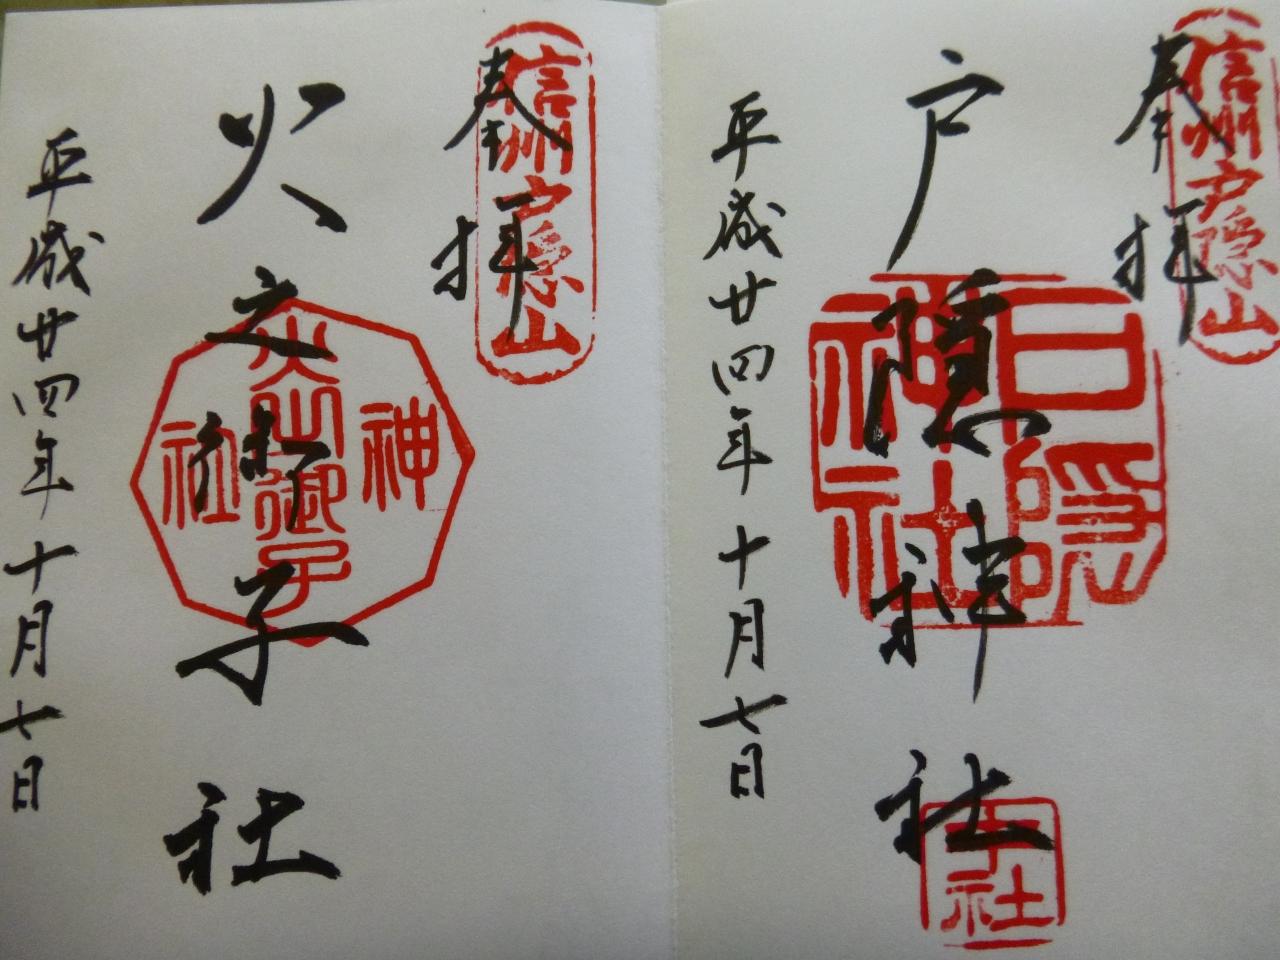 奉拝
信州戸隠山
戸隠神社
戸隠神社
中社
平成廿四年十月七日
奉拝
信州戸隠山
火之御子社
火之御子
神社
平成廿四年十月七日